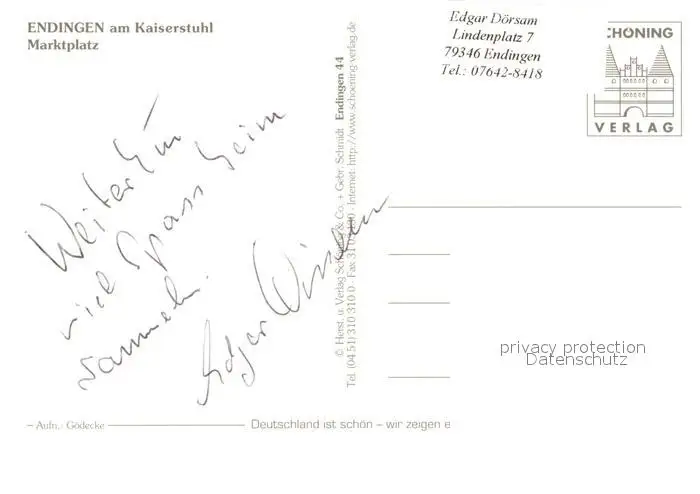 ENDINGEN am Kaiserstuhl
Marktplatz
Edgar Dörsam
Lindenplatz 7
79346 Endingen
Tel.: 07642-8418
CHÖNING
VERLAG
Weiterhin
viel Spass beim
sammeln.
Edgar
© Herst. u. Verlag Schöning & Co. + Gebr. Schmidt Endingen 44
Tel. (04 51) 310 310 Fax Internet: http://www.schoening-verlag.de
privacy protection
Datenschutz
Aufn.: Gödecke
Deutschland ist schön – wir zeigen e